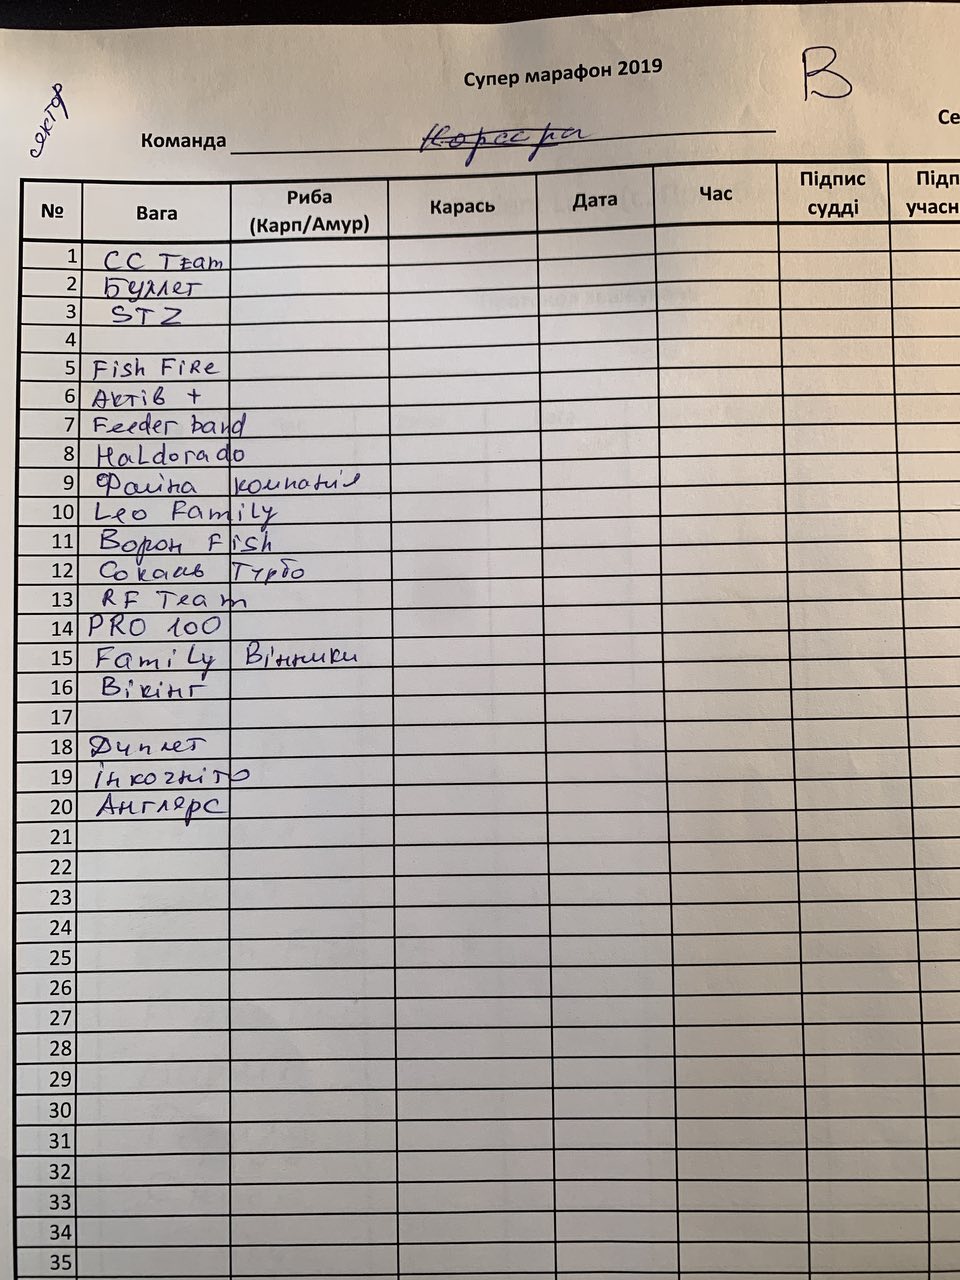 Супер марафон 2019
В
сектор
Се
Команда Корсари
№ Вага Риба (Карп/Амур) Карась Дата Час Підпис судді Підп учасн
1 CC Team
2 Буллет
3 STZ
4
5 Fish Fire
6 Актів +
7 Feeder band
8 Haldorado
9 Файна компанія
10 Leo Family
11 Ворон Fish
12 Сокаль Турбо
13 RF Team
14 PRO 100
15 Family Вінники
16 Вікінг
17
18 Дуплет
19 інкогніто
20 Англерс
21
22
23
24
25
26
27
28
29
30
31
32
33
34
35